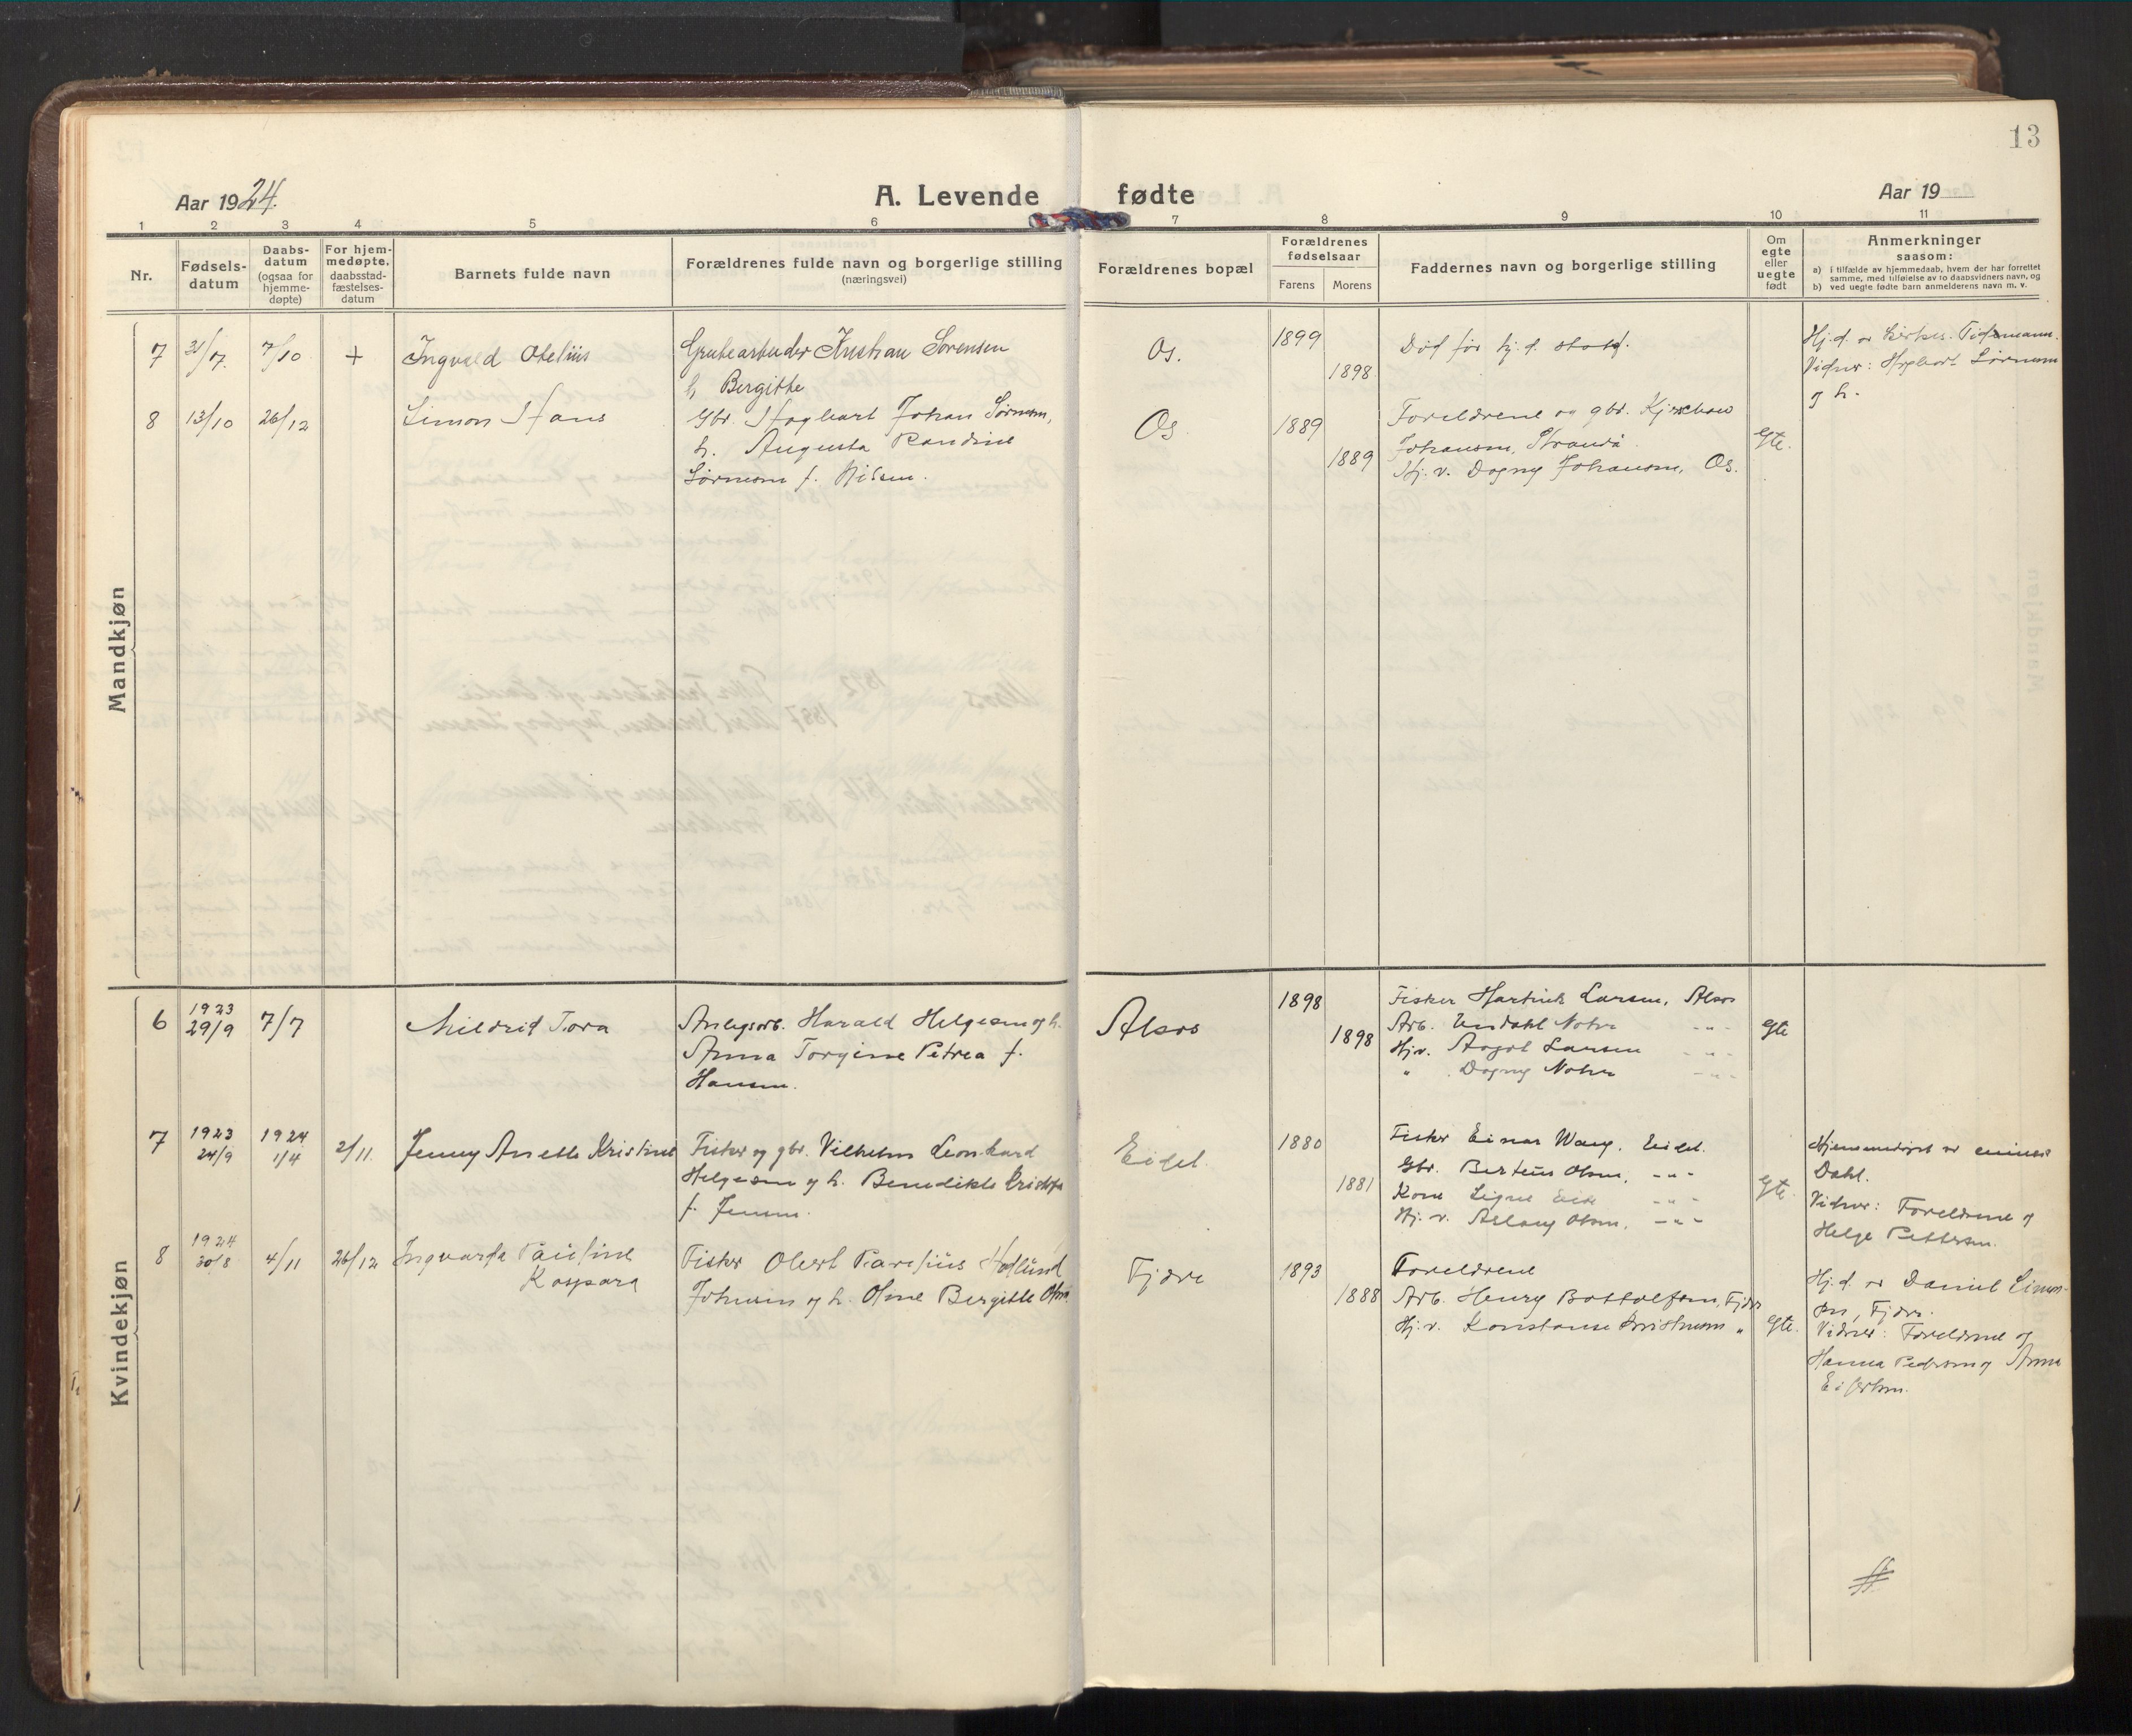 13
Aar 1924.
A. Levende fødte
Aar 19
1 2 3 4 5 6 7 8 9 10 11
Nr.
Fødsels-
datum
Daabs-
datum
(ogsaa for
hjemme-
døpte)
For hjem-
medøpte.
daabsstad-
fæstelses-
datum
Barnets fulde navn
Forældrenes fulde navn og borgerlige stilling
(næringsvei)
Forældrenes bopæl
Forældrenes
fødselsaar
Farens Morens
Faddernes navn og borgerlige stilling
Om
egte
eller
uegte
født
Anmerkninger
saasom:
a) i tilfælde av hjemmedaab, hvem der har forrettet
samme, med tilføielse av to daabsvidners navn, og
b) ved uegte fødte barn anmelderens navn m. v.
Mandkjøn
7 31/7. 7/10 + Ingvald Otelius
Grubearbeider Kristian Sørensen
h. Bergitte
Os.
1899
1898
Død før hj. d. stadf.
Hj. d. av Tidemann.
Vidner: Hagbart Sørensen
og h.
8 13/10 26/12 Simon Hans
Gbr. Hagbart Johan Sørensen,
h. Augusta Randine
Sørensen f. Nilsen.
Os
1889
1889
Foreldrene og gbr.
Johansen, Strandå.
Hj. v. Dagny Johansen, Os.
Egte.
Kvindekjøn
6 1923
29/9 7/7 Mildrid Tora
Anlegsarb. Harald Helgesen og h.
Anna Torgine Petrea f.
Hansen.
Alsos
1898
1898
Fisker Hartvik Larsen, Alsos
Arb. Nohr -"-
Hj.v. Aagot Larsen -"-
" Dagny Nohr -"-
Egte
7 1923
24/9 1924
1/4 2/11. Jenny Anette Kristine
Fisker og gbr. Vilhelm Leonhard
Helgesen og h. Benedikte
f. Jensen.
Eidet.
1880
1881
Fisker Einar Wang, Eidet.
Gbr. Bertéus Olsen, -"-
Kone Signe -"-
Hj. v. Aslaug Olsen, -"-
Egte.
Hjemmedøpt av
Dahl.
Vidner: Foreldrene og
Helge Pettersen.
8 1924
30/8 4/11 26/12 Ingvarda Pauline
Kaspara
Fisker Obert Parelius Hedlund
Johnsen og h. Olme Bergitte Olsen
Fjære
1893
1888
Foreldrene
Arb. Henry Bottolfsen, Fjære
Hj. v. Konstanse "
Egte.
Hj. d. av Daniel Simon-
sen, Fjære.
Vidner: Foreldrene og
Hanna Pedersen og Anna